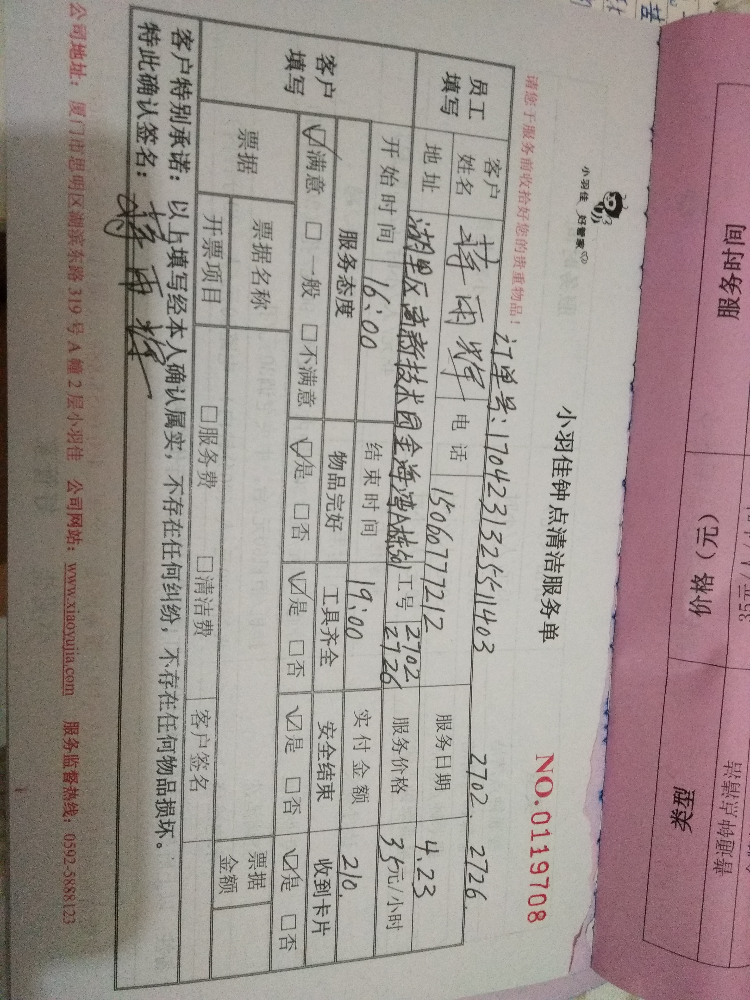 服务时间
价格（元）
类型
普通钟点清洁
小羽佳 好管家
小羽佳钟点清洁服务单
NO.0119708
请您于服务前收拾好您的贵重物品！
订单号：
2702. 2726.
员工填写
客户姓名 蒋雨辉 电话 15060777212 服务日期 4.23
地址 湖里区高新技术园金海湾A栋 工号 2702 2726 服务价格 35元/小时
开始时间 16:00 结束时间 19:00 实付金额 210.
客户填写
服务态度 物品完好 工具齐全 安全结束 收到卡片
☑满意 □一般 □不满意 ☑是 □否 ☑是 □否 ☑是 □否 ☑是 □否
票据 票据名称 票据金额
开票项目 □服务费 □清洁费 客户签名
客户特别承诺：以上填写经本人确认属实，不存在任何纠纷，不存在任何物品损坏。
特此确认签名：蒋雨辉
公司地址：厦门市思明区湖滨东路319号A幢2层小羽佳 公司网站：www.xiaoyujia.com 服务监督热线：0592-5888123